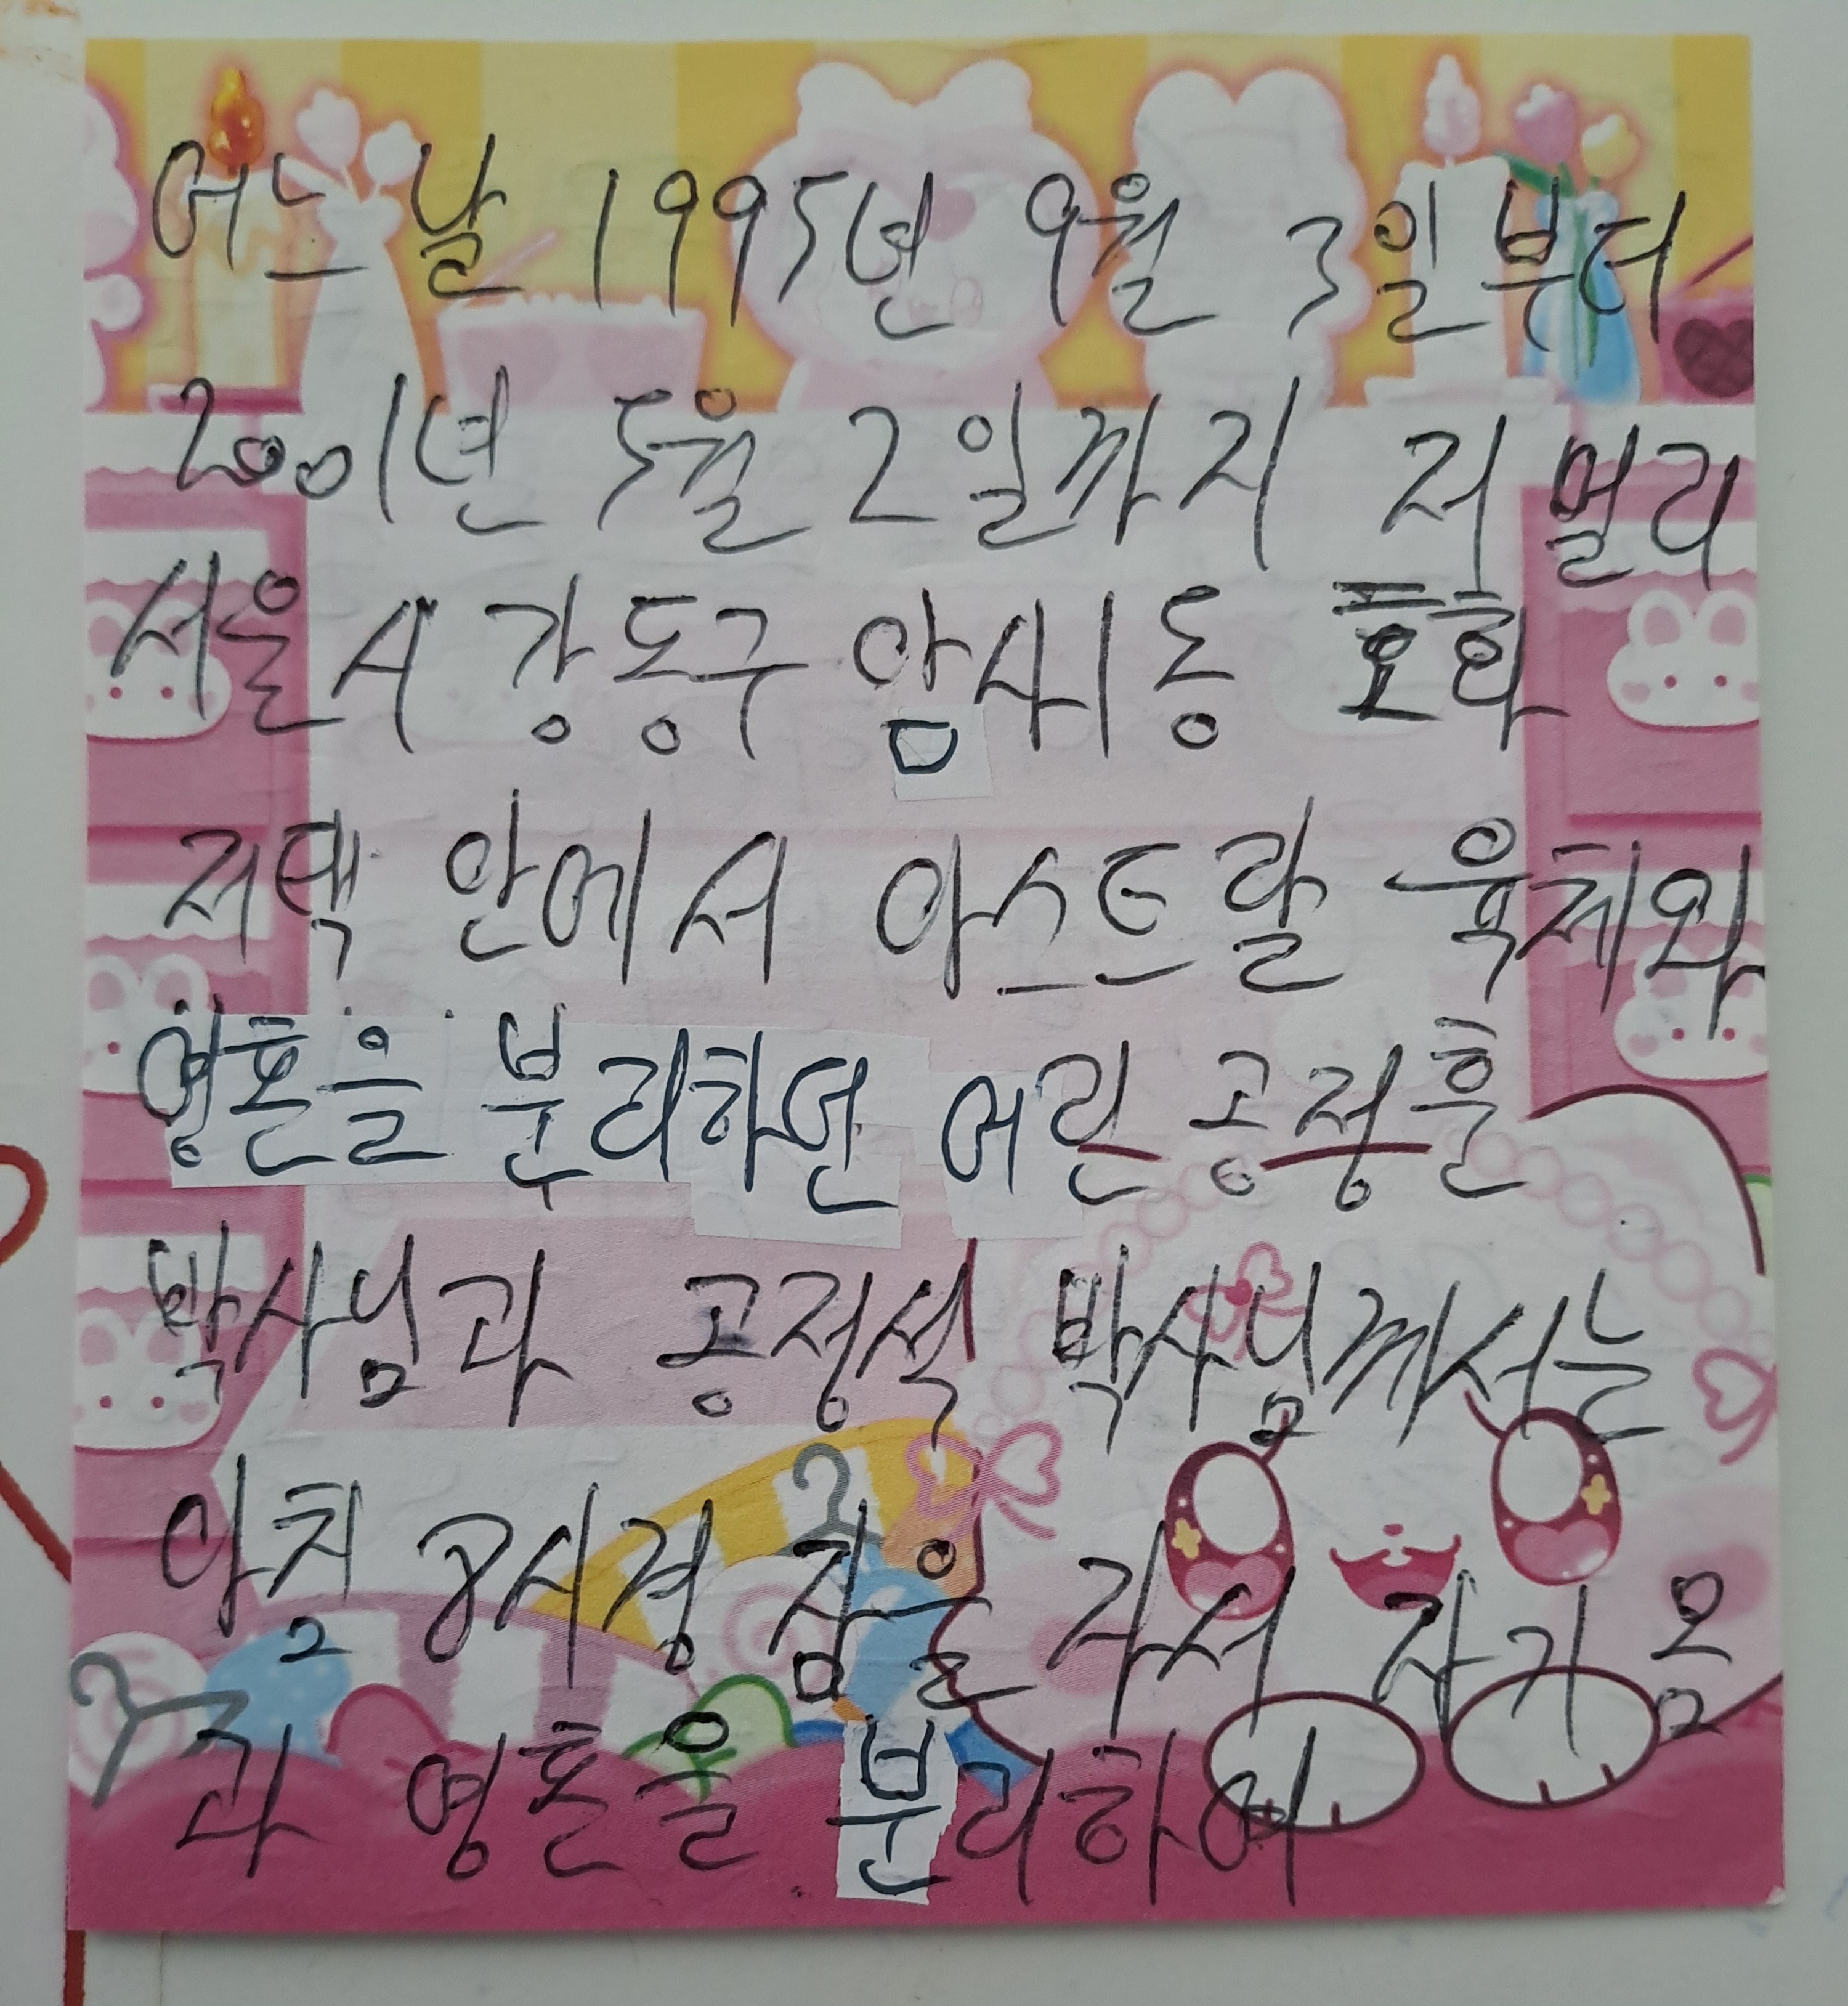 어느날 1995년 9월 3일부터
2001년 5월 2일까지 저 멀리
서울시 강동구 암사동 호화
저택 안에서 아스트랄 육체와
영혼을 분리하던 어린 공정훈
박사님과 공정석 박사님께서는
아침 8시경 잠을 자서 자기 몸
과 영혼을 분리하여